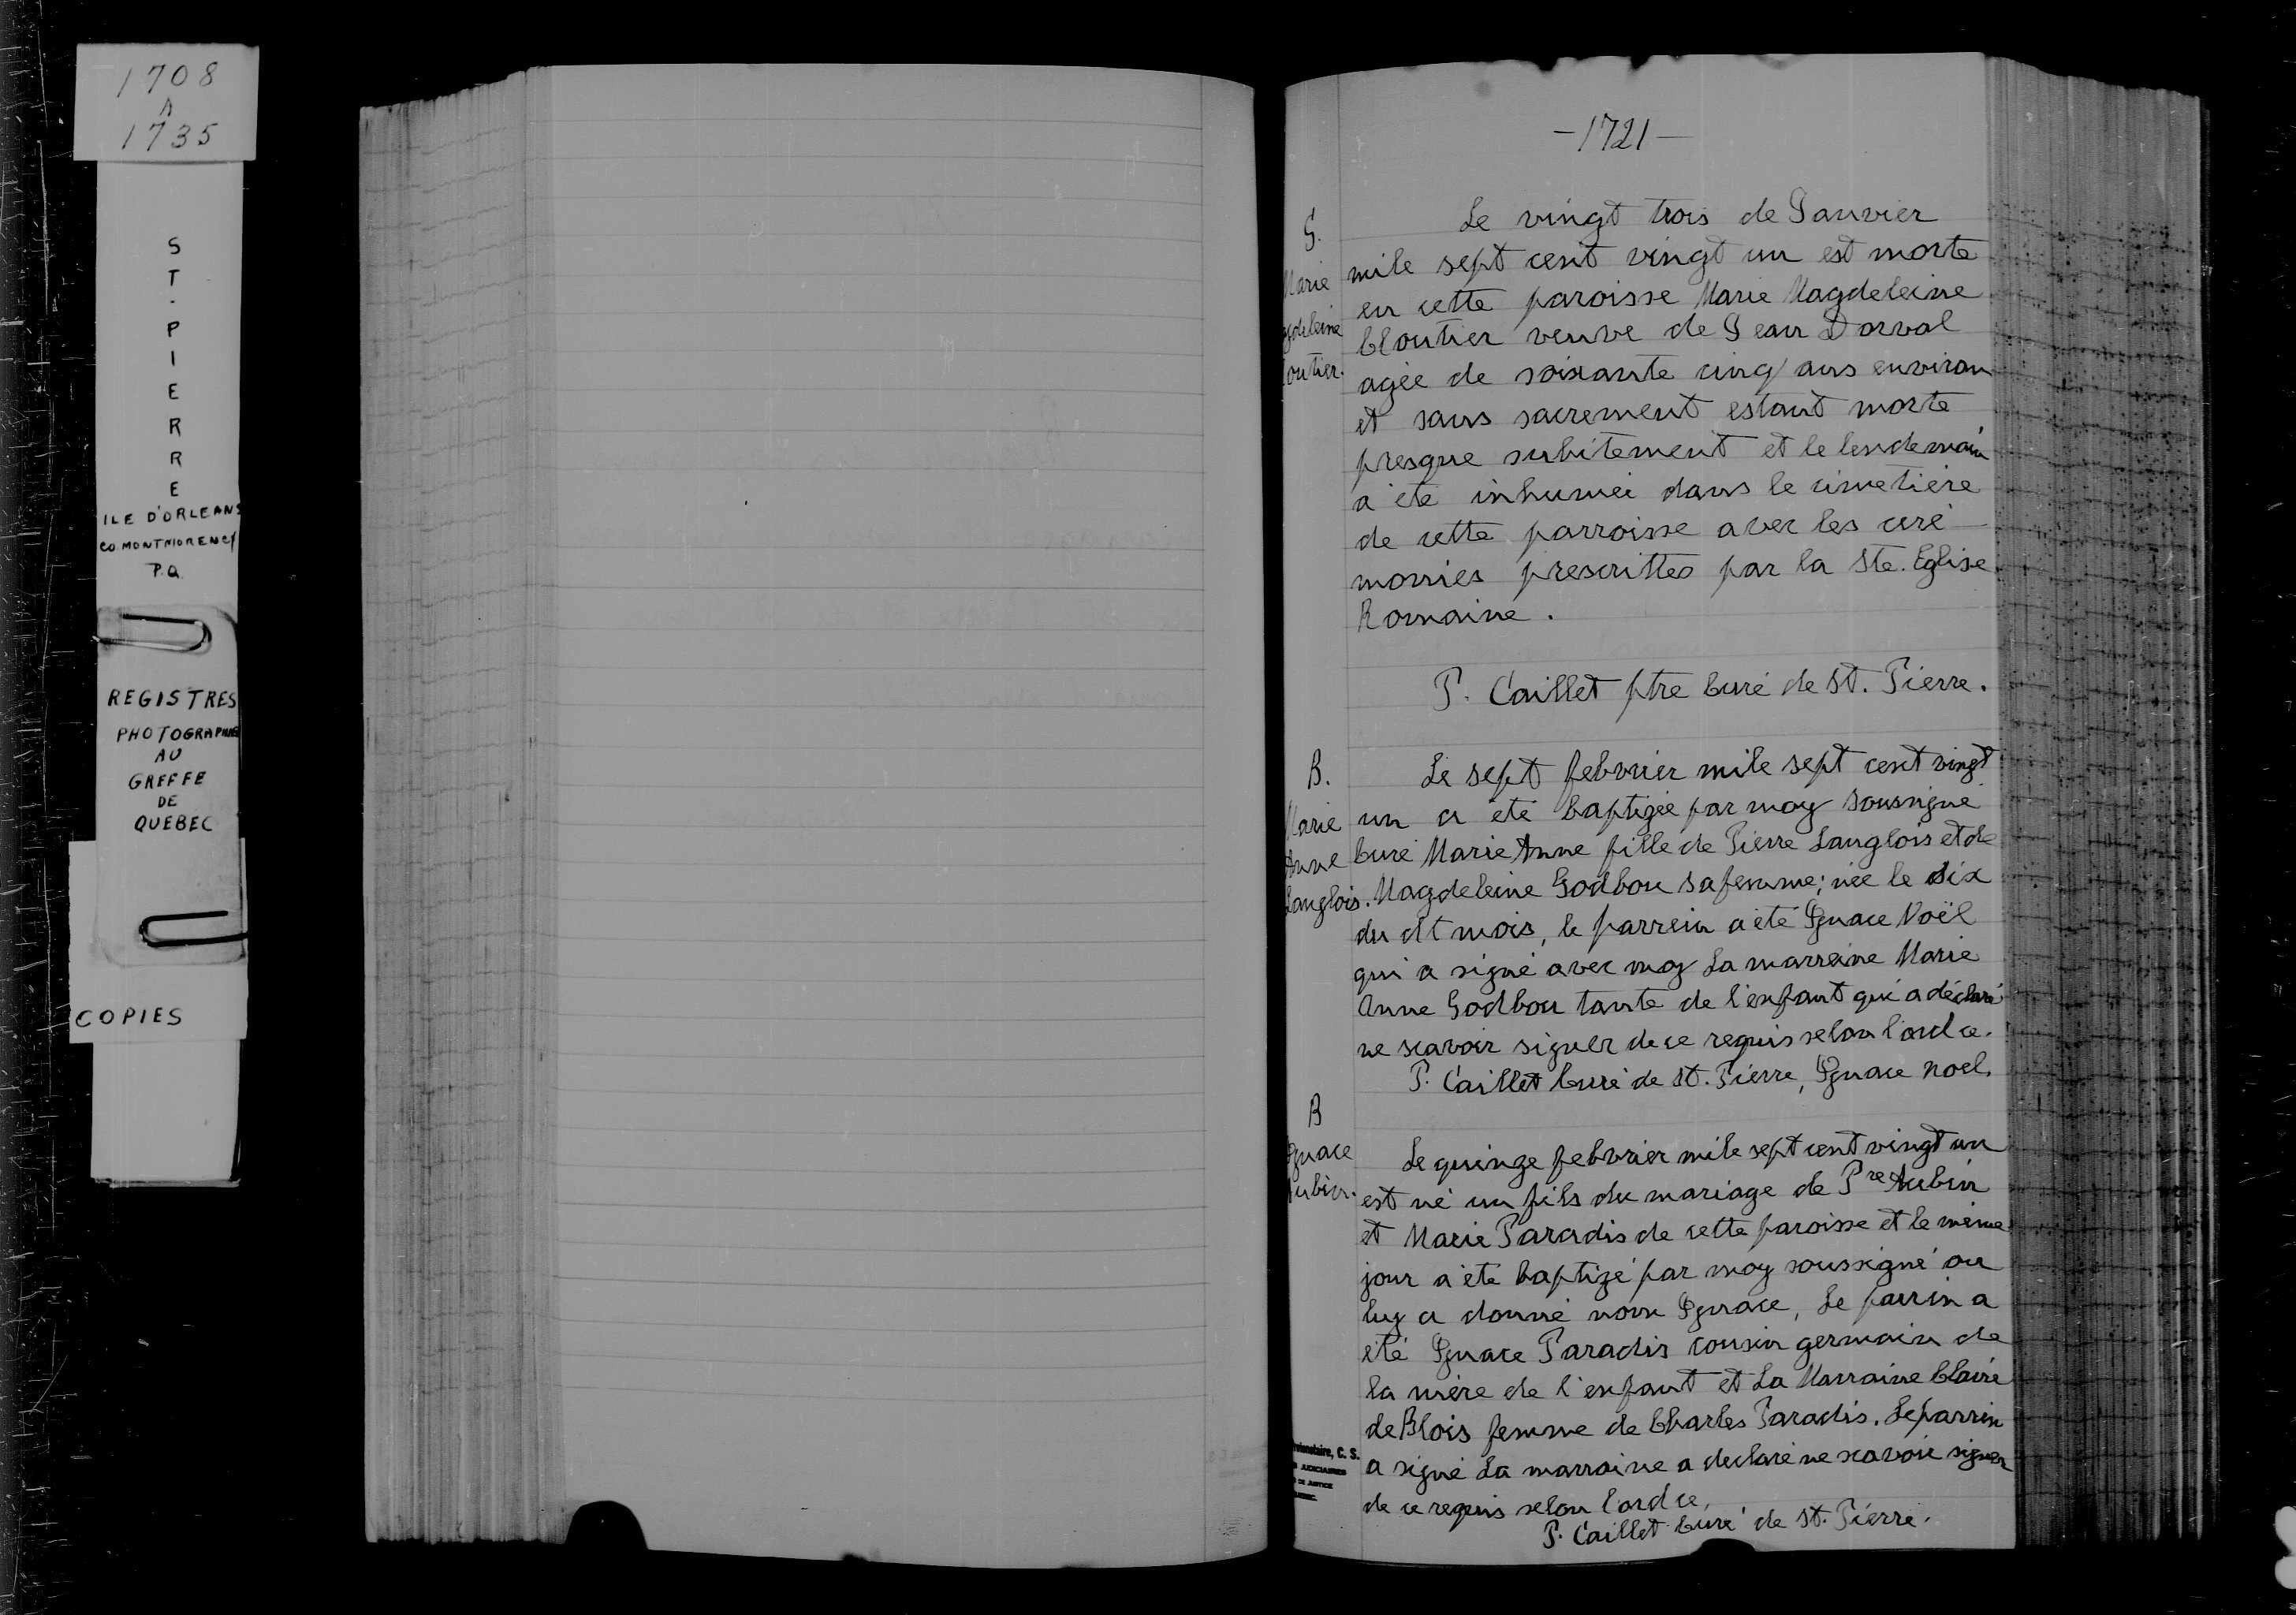 1708
A
1735
ST-PIERRE
ILE D'ORLEANS
CO. MONTMORENCY
P.Q.
REGISTRES
PHOTOGRAPHIES
AU
GREFFE
DE
QUEBEC
COPIES
-1721-
S.
Marie
gdeleine
outier.
Le vingt trois de Janvier
mile sept cent vingt un est morte
en cette paroisse Marie Magdeleine
Cloutier veuve de Jean Dorval
agée de soixante cinq ans environ
et sans sacrement estant morte
presque subitement et le lendemain
a été inhumée dans le cimetière
de cette parroisse avec les céré
monies prescrittes par la Ste. Eglise
Romaine.
P. Caillet ptre Curé de St. Pierre.
B.
Marie
Anne
Langlois.
Le sept febvrier mile sept cent vingt
un a été baptizée par moy soussigné
Curé Marie Anne fille de Pierre Langlois et de
Magdeleine Godbou sa femme; née le dix
du dt mois, le parrein a été Ignace Noël
qui a signé avec moy La marreine Marie
Anne Godbou tante de l'enfant qui a déclaré
ne scavoir signer de ce requis selon l'ordce.
P. Caillet Curé de St. Pierre, Ignace noel.
B
Ignace
Aubin.
Le quinze febvrier mile sept cent vingt un
est né un fils du mariage de Pre Aubin
et Marie Paradis de cette paroisse et le même
jour a été baptizé par moy soussigné on
luy a donné nom Ignace, Le parrin a
été Ignace Paradis cousin germain de
la mère de l'enfant et La Marraine Claire
de Blois femme de Charles Paradis. Le parrin
a signé La marraine a déclaré ne scavoir signer
de ce requis selon l'ordce,
P. Caillet Curé de St. Pierre.
C. S.
JUDICIAIRES
DE JUSTICE